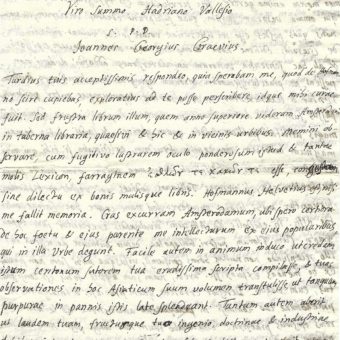 Viro Summo, Hadriano Vallesio
S. P. D.
Joannes Georgius Graevius.
Tardius tuis acceptissimis respondeo, quia sperabam me, quod de
no scire cupiebas, exploratius ad te posse perscribere idque mihi curae
fuit. Sed frustra librum illum, quem anno superiore videram
in taberna libraria, quaesivi & hic & in vicinis urbibus. Memini ob-
servare, cum fugitivo lustrarem oculo ponderosum istud & tantae
molis Lexicon, farraginem esse,
sine dilectu ex bonis malisque libris. Hofmannus Helvetius
me fallit memoria. Cras excurram Amstelodamum, ubi spero certiora
de hoc foetu & ejus parente me intellecturum ex ejus popularibus
qui in illa Urbe degunt. Facile autem in animum induco
ipsum centonum sutorem tua eruditissima scripta compilasse, & tuas
observationes in hoc suum volumen transtulisse, ut tanquam
purpurae in pannis istis late splendeant. Tantum autem abest
ut laudem tuam, fructumque tuo ingenio, doctrinae & industriae